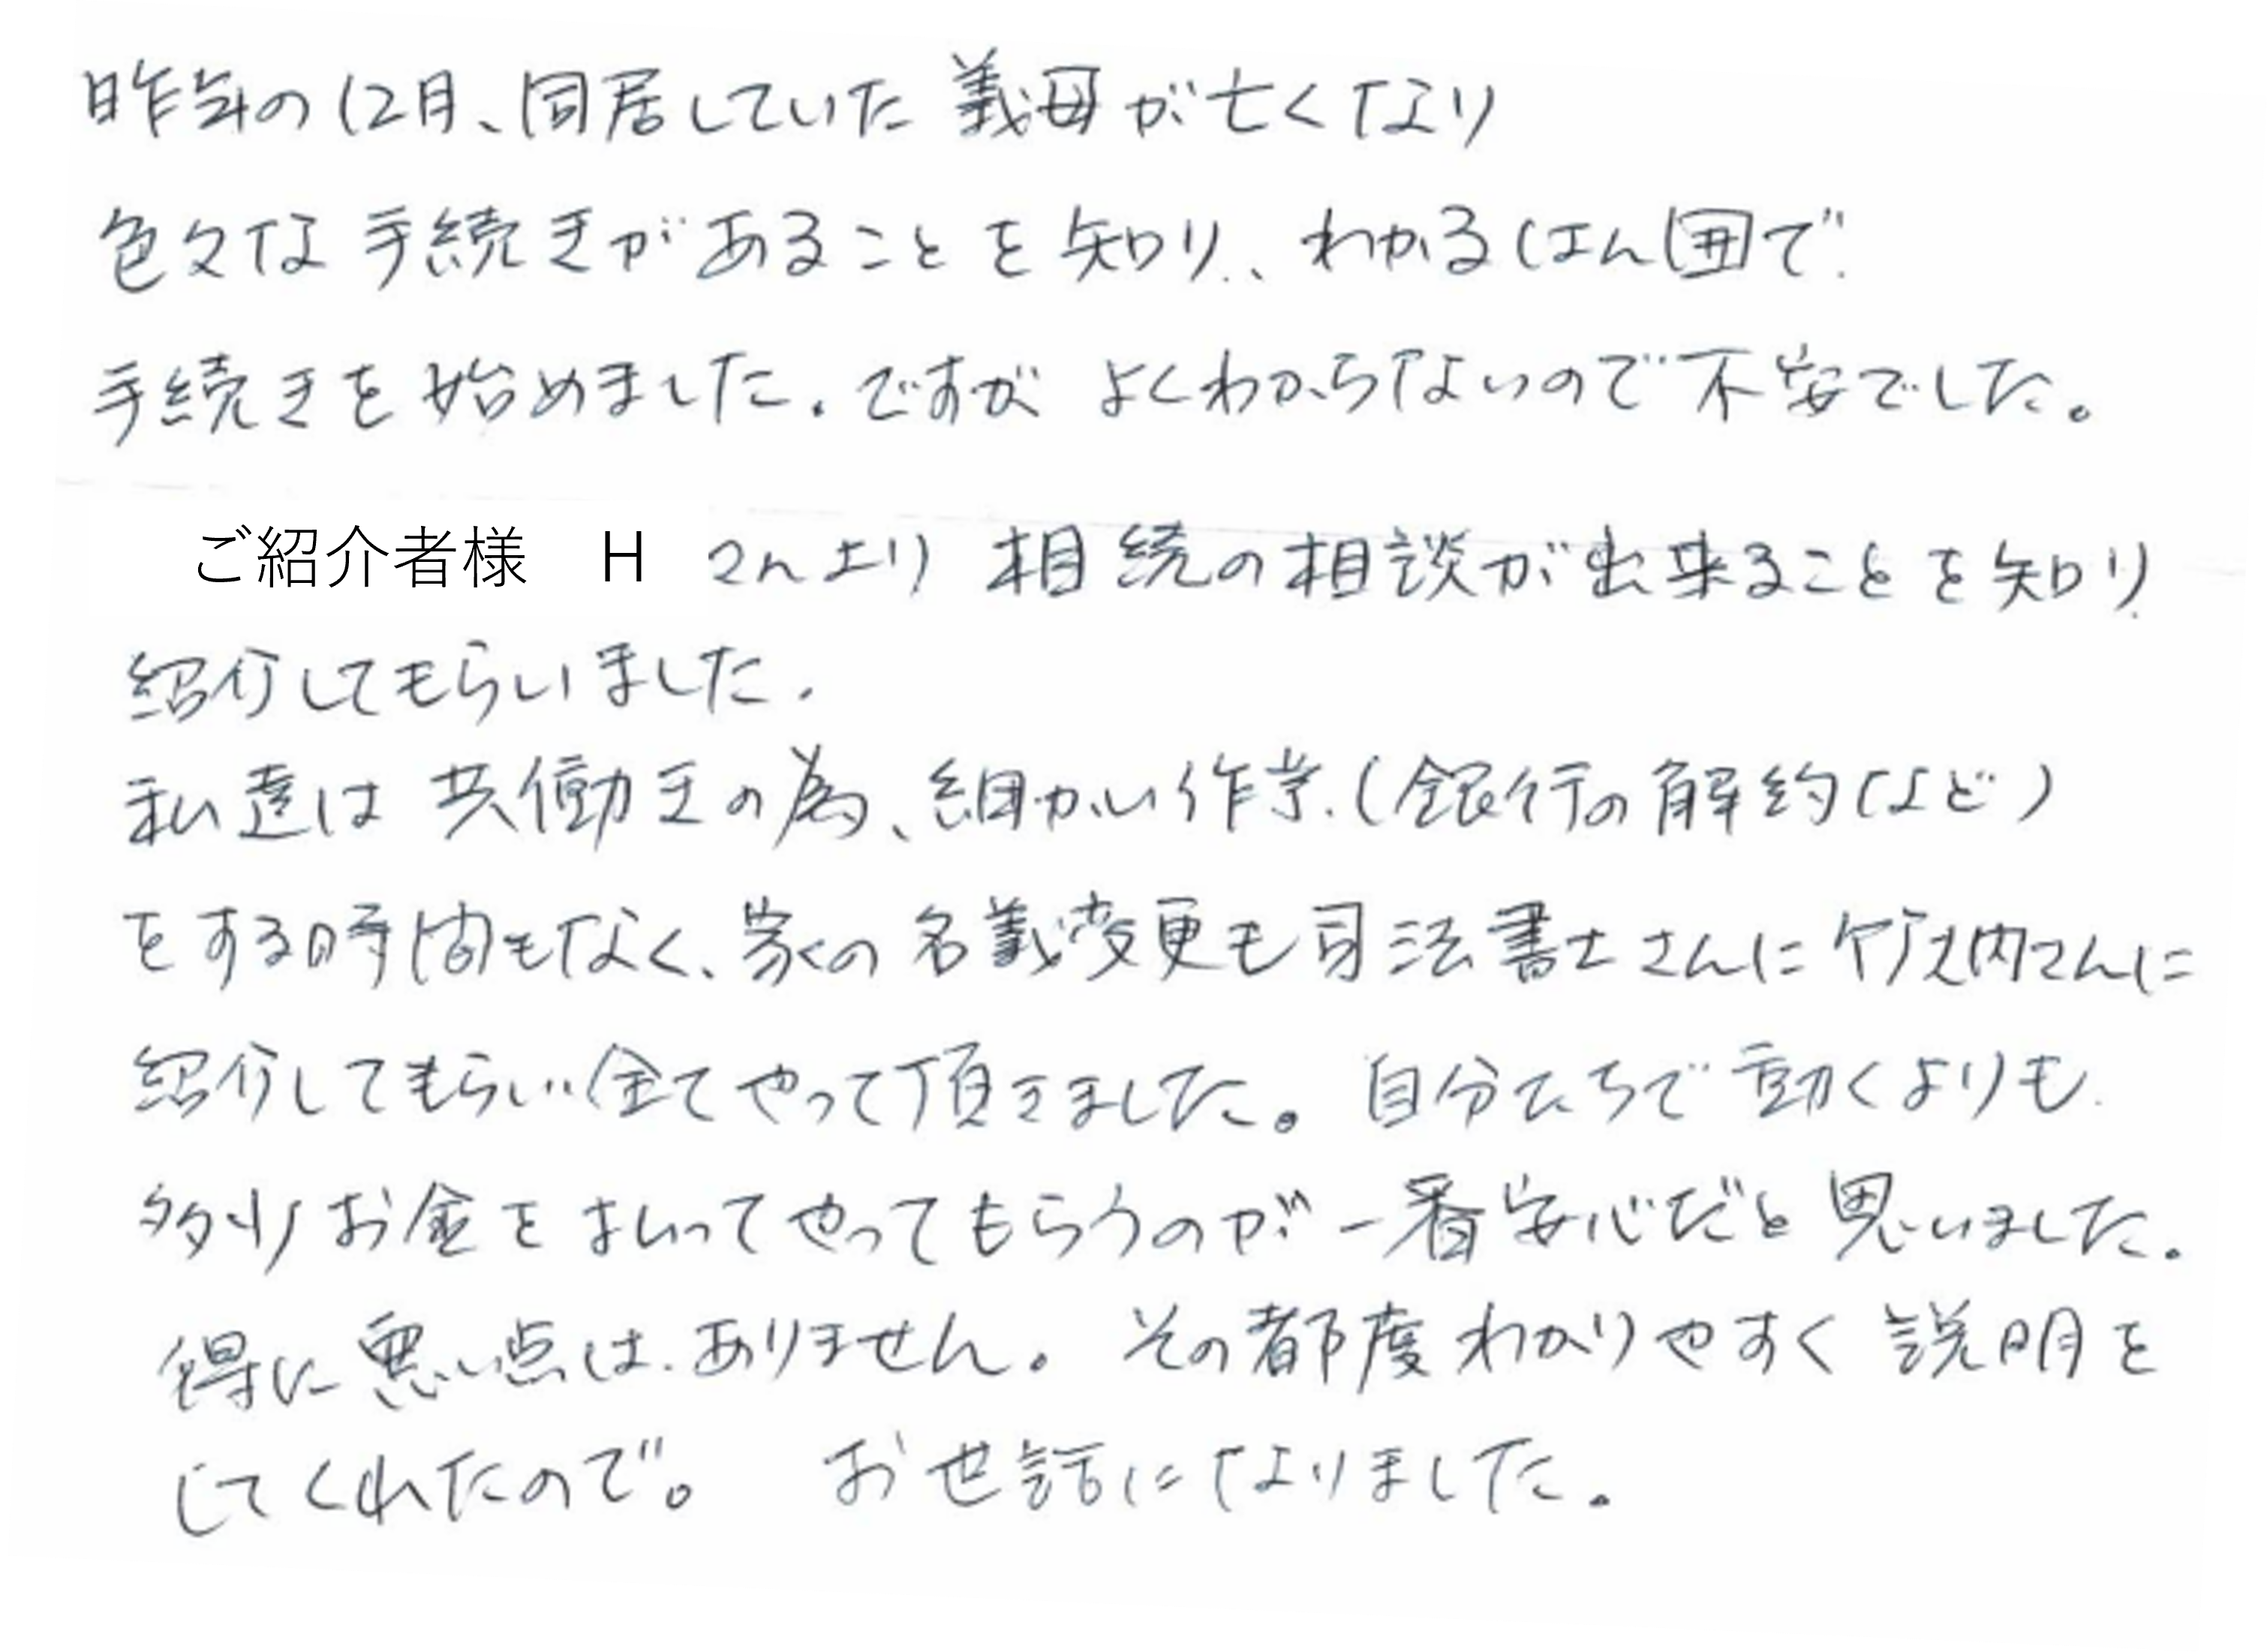 昨年の12月、同居していた義母が亡くなり
色々な手続きがあることを知り、わかるはん囲で
手続きを始めました。ですが よくわからないので不安でした。
ご紹介者様 H さんより 相続の相談が出来ることを知り
紹介してもらいました。
私達は共働きの為、細かい作業(銀行の解約など)
をする時間もなく、家の名義変更も司法書士さんに竹之内さんに
紹介してもらい全てやって頂きました。自分たちで動くよりも
多少お金をはらってやってもらうのが一番安心だと思いました。
得に悪い点はありません。その都度わかりやすく説明を
してくれたので。 お世話になりました。